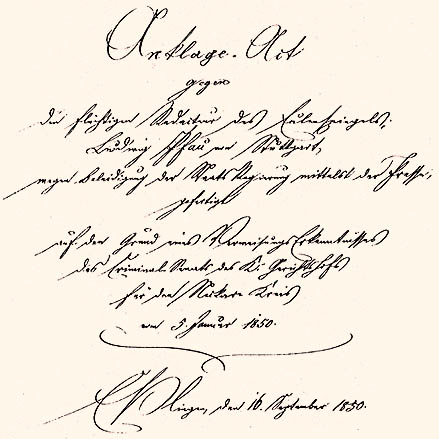 Anklage-Act
gegen
den flüchtigen Redakteur des Eulenspiegels,
Ludwig Pfau von Stuttgart,
wegen Beleidigung der Staatsregierung mittelst der Presse,
gefertigt
auf den Grund eines Verweisungs Erkenntnisses
des Criminal-Senats des K. Gerichtshofs
für den Neckar Kreis
vom 5. Januar 1850.
Eßlingen, den 16. September 1850.